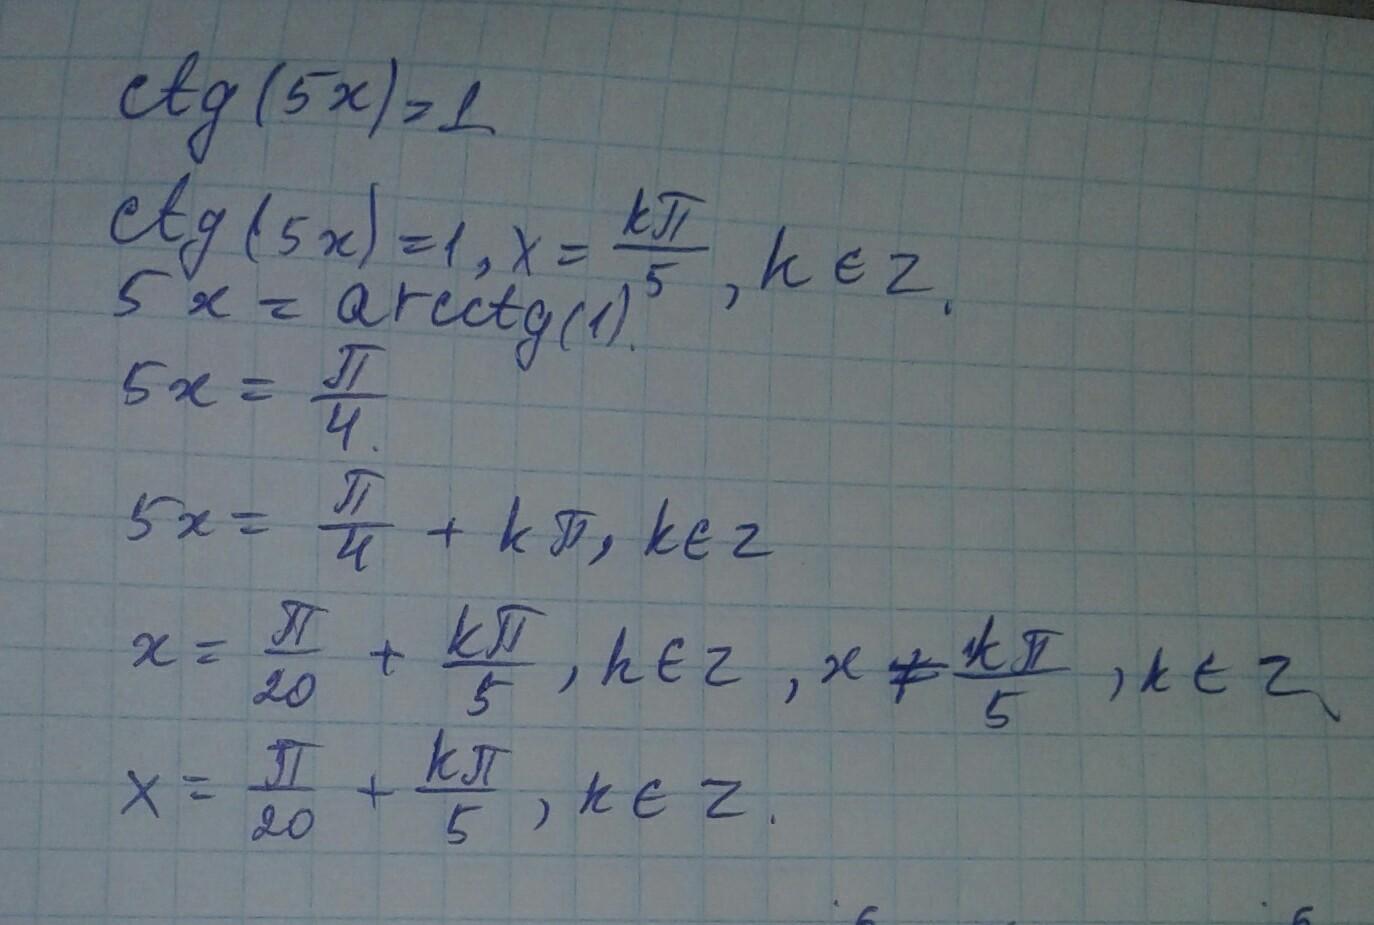 ctg(5x)=1
ctg(5x)=1, x = kπ/5, k ∈ z.
5x = arcctg(1).
5x = π/4.
5x = π/4 + kπ, k∈z
x = π/20 + kπ/5, k∈z, x ≠ kπ/5, k ∈ z
x = π/20 + kπ/5, k ∈ z.